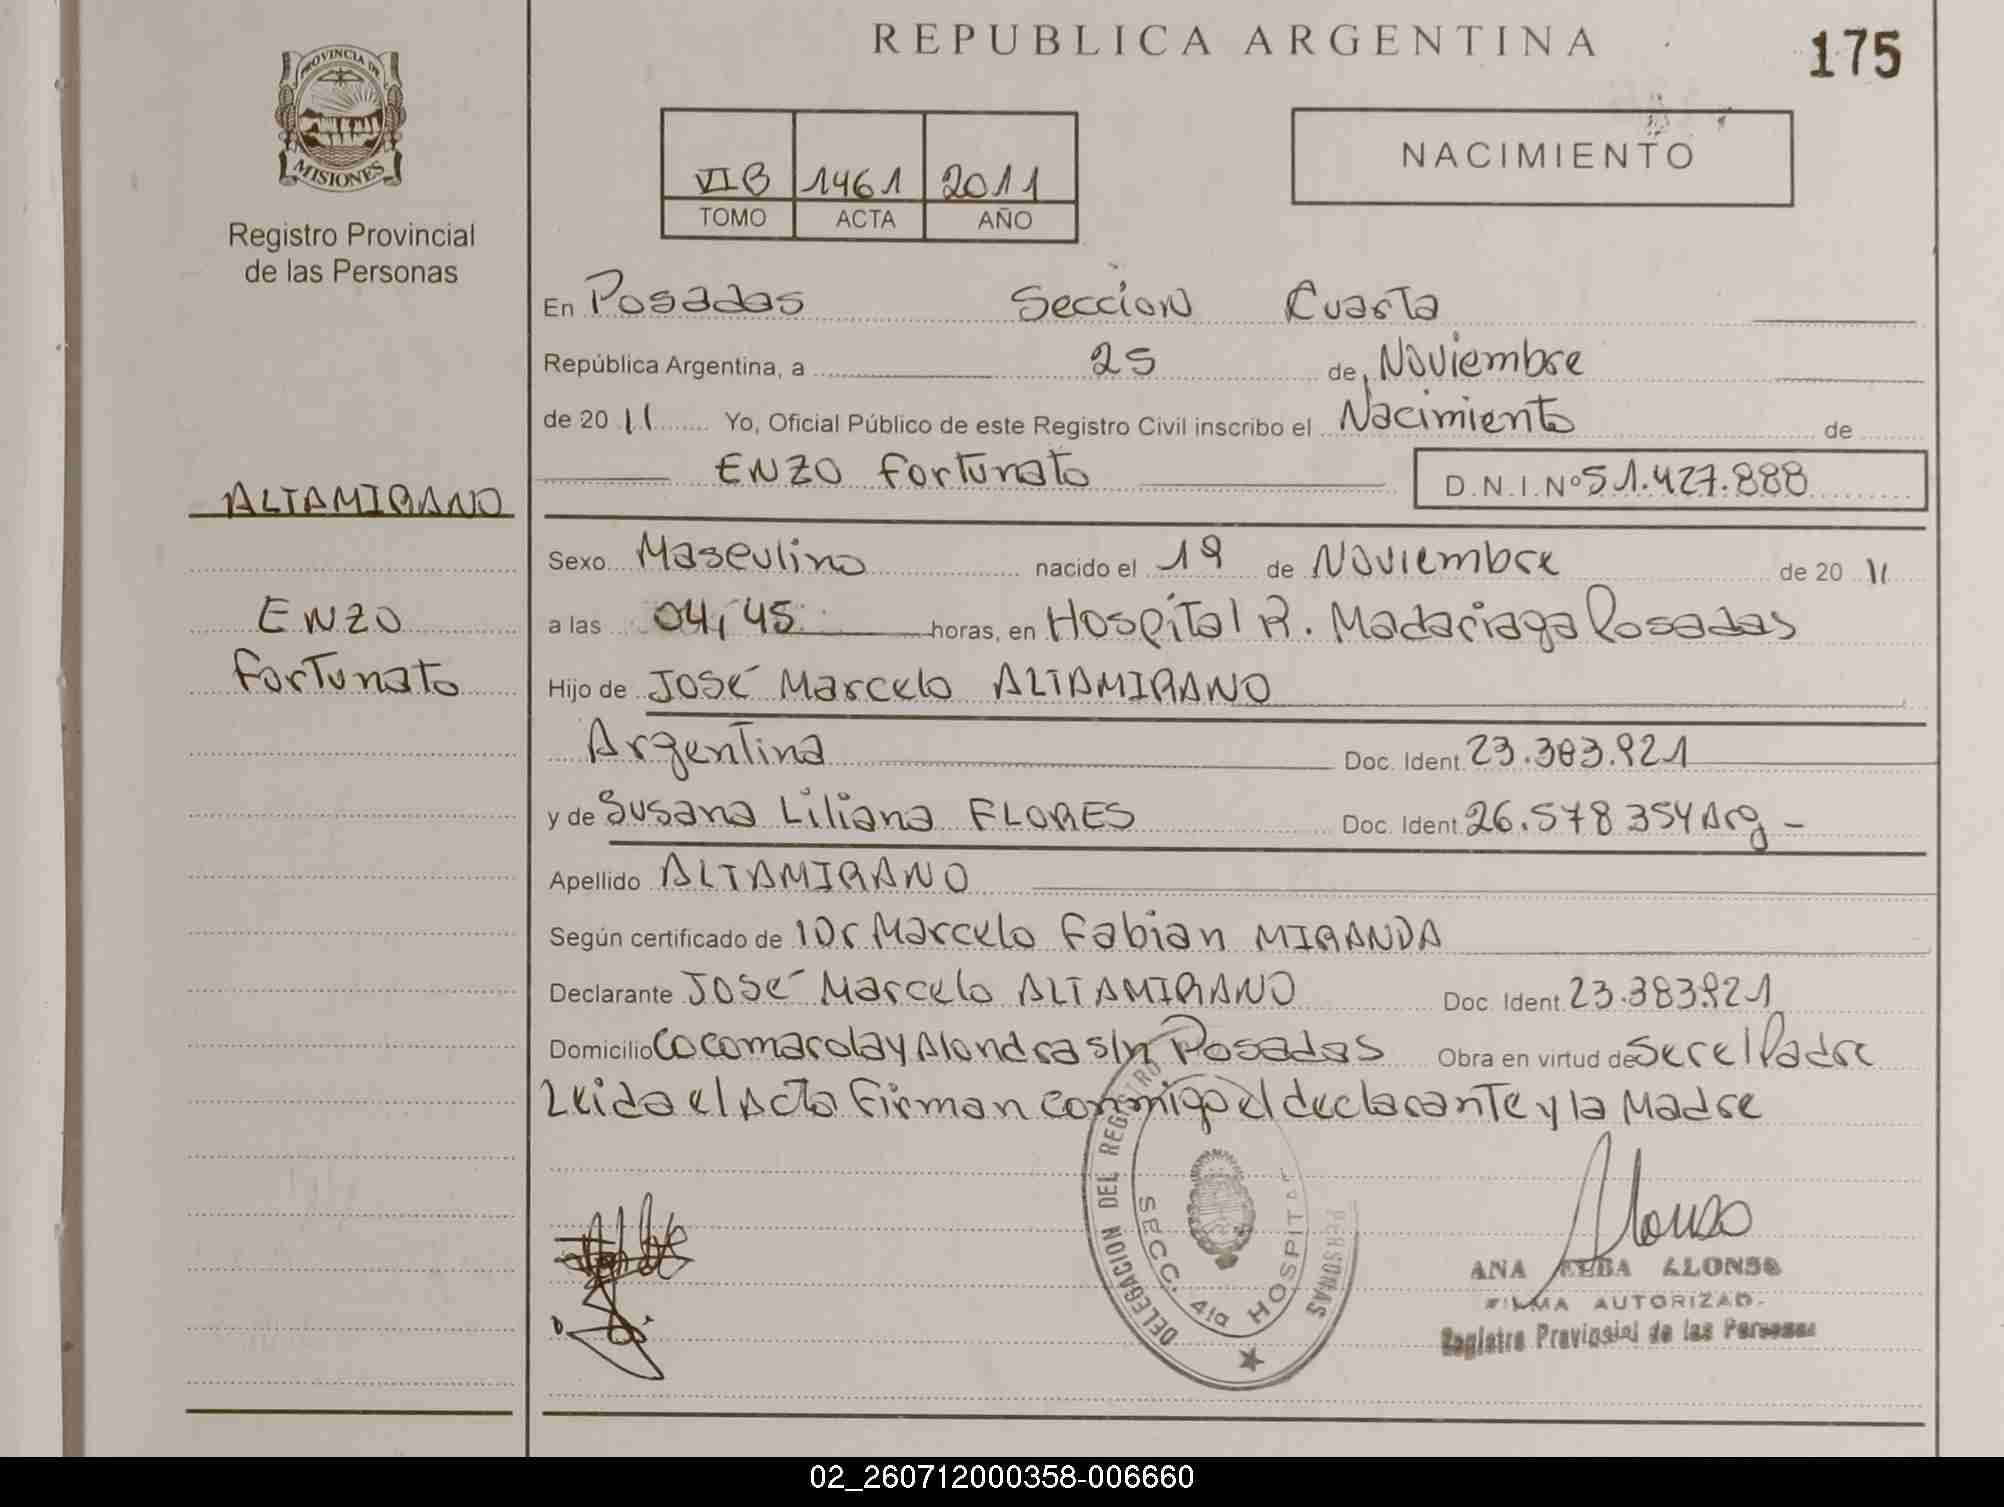 REPUBLICA ARGENTINA
175
PROVINCIA DE
MISIONES
Registro Provincial
de las Personas
VI B 1461 2011
TOMO ACTA AÑO
NACIMIENTO
En Posadas Seccion Cuarta
República Argentina, a 25 de Noviembre
de 20 11 Yo, Oficial Público de este Registro Civil inscribo el Nacimiento de
ENZO Fortunato D.N.I.Nº 51.427.888
ALTAMIRANO
Sexo Masculino nacido el 19 de Noviembre de 20 11
ENZO
a las 04,45 horas, en Hospital R. Madariaga Posadas
Fortunato
Hijo de José Marcelo ALTAMIRANO
Argentina Doc. Ident. 23.383.921
y de Susana Liliana FLORES Doc. Ident. 26.578 354 Arg -
Apellido ALTAMIRANO
Según certificado de Dr Marcelo Fabian MIRANDA
Declarante José Marcelo ALTAMIRANO Doc. Ident. 23.383.921
Domicilio Cocomarola y Alondra s/n Posadas Obra en virtud de Ser el Padre
Leida el Acta Firman conmigo el declarante y la Madre
DELEGACION DEL REGISTRO
PERSONAS
SECC. 4ta HOSPITAL
Alonso
ANA ELBA ALONSO
FIRMA AUTORIZAD.
Registro Provincial de las Personas
02_260712000358-006660